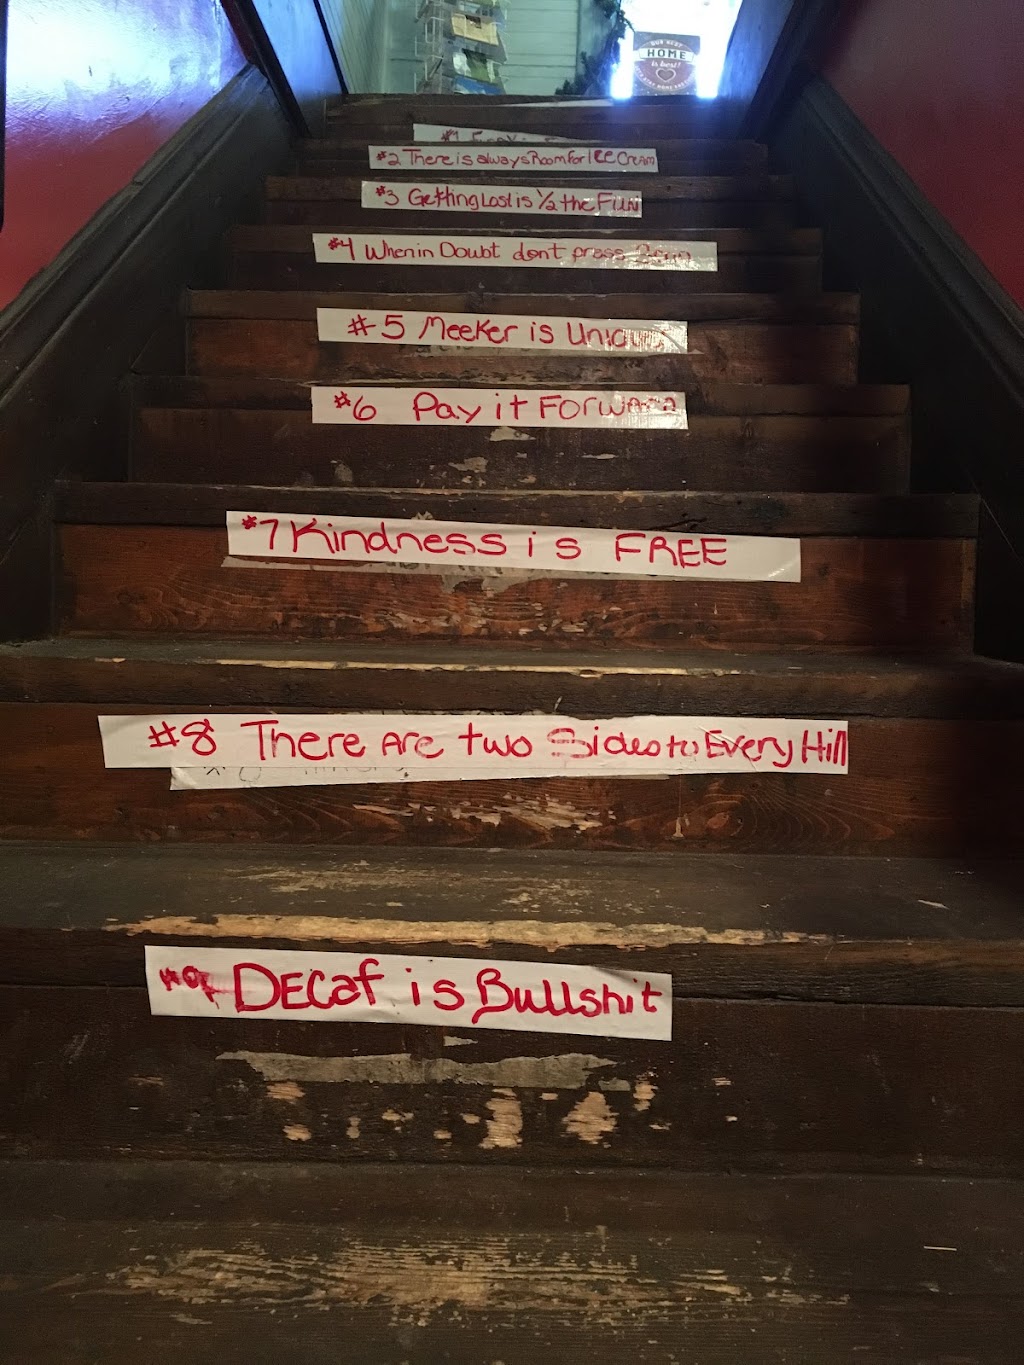 OUR NEST
HOME
is best!
#2 There is always Room For Ice Cream
#3 Getting Lost is 1/2 the FUN
#4 When in Doubt don't press
#5 Meeker is Unique
#6 Pay it Forward
#7 Kindness is FREE
#8 There Are two Sides to Every Hill
#9 DECaf is Bullshit